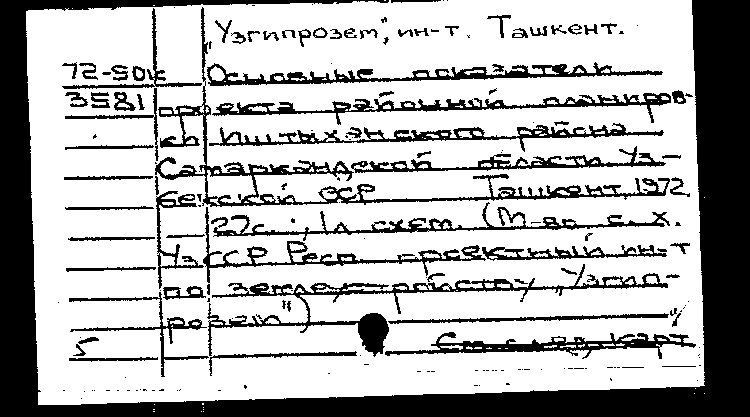 „Узгипрозем", ин-т. Ташкент.
72-50к Основные показатели
3581 проекта районной планиров-
ки Иштыханского района
Самаркандской области Уз-
бекской ССР Ташкент, 1972.
27с.; 1л схем. (М-во с. х.
УзССР Респ проектный ин-т
по землеустройству „Узгип-
розем")
5 См. след. карт